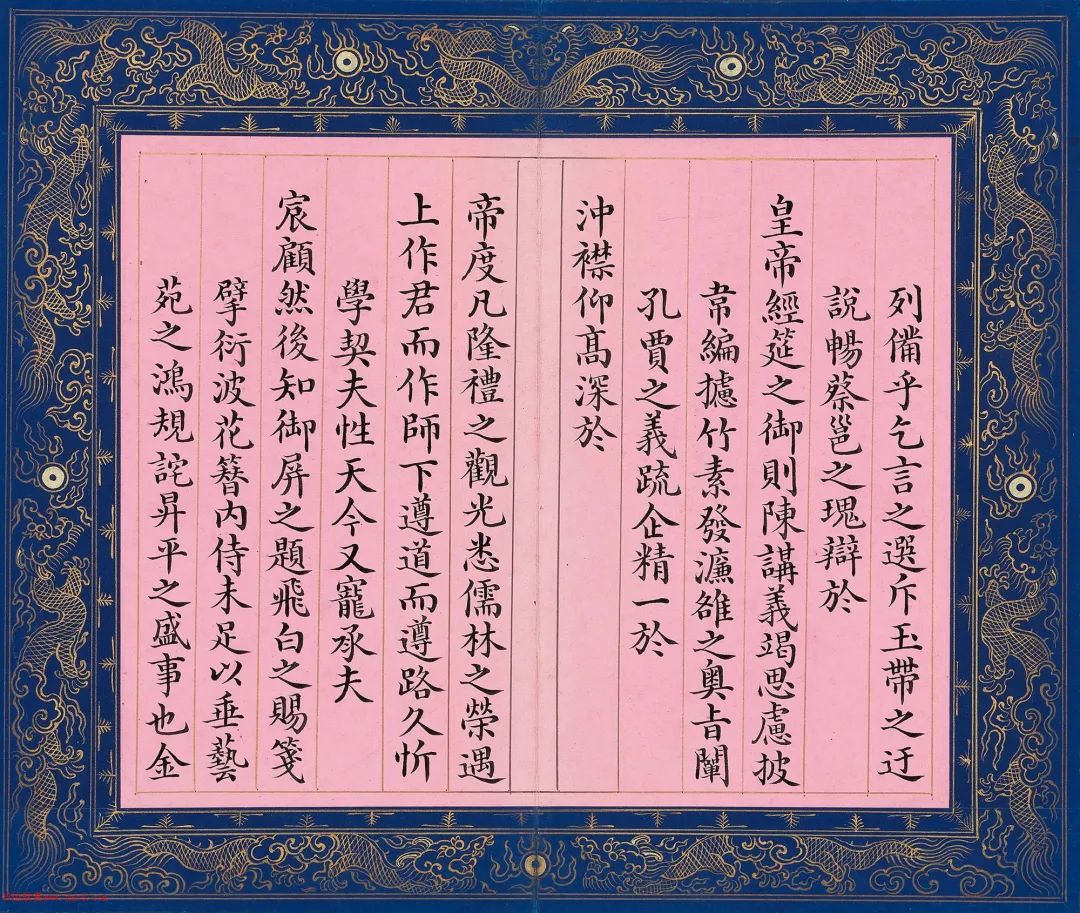 列備乎乞言之選斥玉帶之迂
說暢蔡邕之瑰辯於
皇帝經筵之御則陳講義竭思慮披
韋編攄竹素發濂雒之奧旨闡
孔賈之義疏企精一於
沖襟仰高深於
帝度凡隆禮之觀光悉儒林之榮遇
上作君而作師下遵道而遵路久忻
學契夫性天今又寵承夫
宸顧然後知御屏之題飛白之賜箋
擘衍波花簪內侍未足以垂藝
苑之鴻規詫昇平之盛事也金